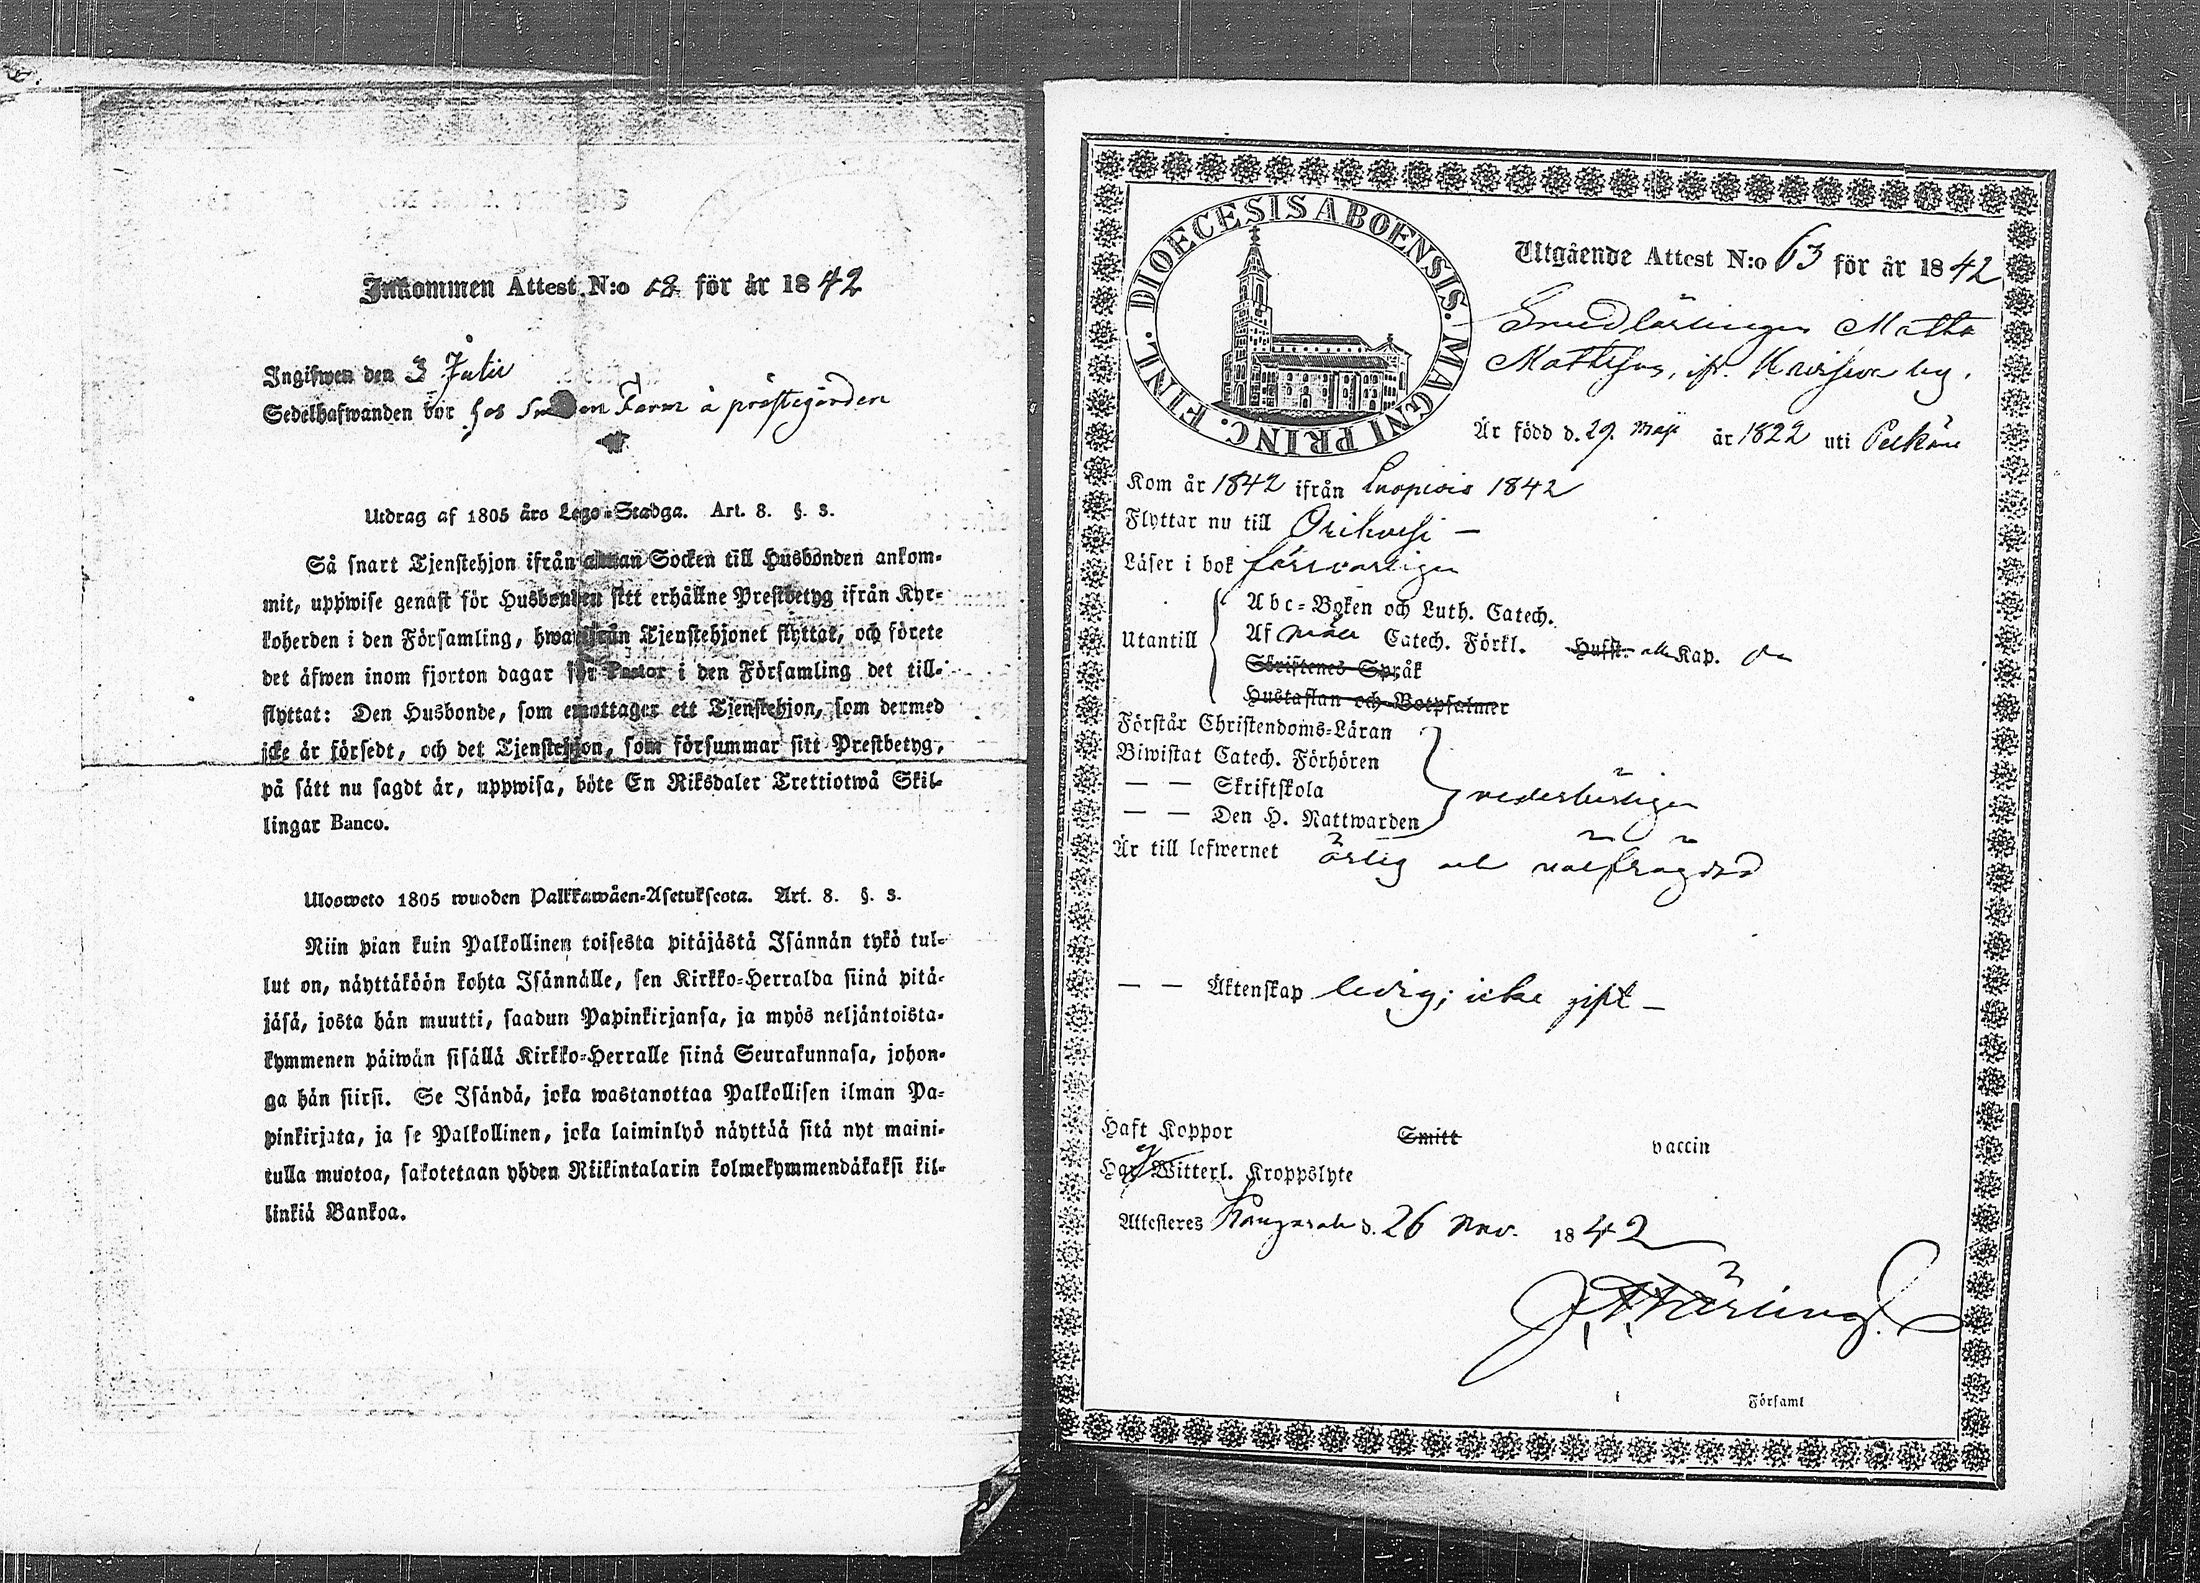 Inkommen Attest N:o 18 för år 1842
Ingifwen den 3 Julii
Sedelhafwanden bor hos Smeden Form å prästegården
Utdrag af 1805 års Lego-Stadga. Art. 8. §. 3.
Så snart Tjenstehjon ifrån annan Socken till Husbonden ankom-
mit, uppwise genast för Husbonden sitt erhållne Prestbetyg ifrån Kyr-
koherden i den Församling, hwarifrån Tjenstehjonet flyttat, och förete
det äfwen inom fjorton dagar för Pastor i den Församling det till-
flyttat: Den Husbonde, som emottager ett Tjenstehjon, som dermed
icke är försedt, och det Tjenstehjon, som försummar sitt Prestbetyg,
på sätt nu sagdt är, uppwisa, böte En Riksdaler Trettiotwå Skil-
lingar Banco.
Ulosweto 1805 wuoden Palkkawäen-Asetuksesta. Art. 8. §. 3.
Niin pian kuin Palkollinen toisesta pitäjästä Isännän tykö tul-
lut on, näyttäköön kohta Isännälle, sen Kirkko-Herralda siinä pitä-
jäsä, josta hän muutti, saadun Papinkirjansa, ja myös neljäntoista-
kymmenen päiwän sisällä Kirkko-Herralle siinä Seurakunnasa, johon-
ga hän siirsi. Se Isändä, joka wastanottaa Palkollisen ilman Pa-
pinkirjata, ja se Palkollinen, joka laiminlyö näyttää sitä nyt maini-
tulla muotoa, sakotetaan yhden Riikintalarin kolmekymmendäkaksi kil-
linkiä Bankoa.
DIOECESIS ABOENSIS. MAGNI PRINC. FINL.
Utgående Attest N:o 63 för år 1842
Smedlärlingen Matts
Mattsson, ifr. by.
Är född d. 29. Maji år 1822 uti Pelkäne
Kom år 1842 ifrån Luopiois 1842
Flyttar nu till Orihvesi –
Läser i bok försvarligen
Utantill
Abc-Boken och Luth. Catech.
Af Catech. Förkl. Husst. Kap.
Skriftenes Språk
Hustaflan och Botpsalmer
Förstår Christendoms-Läran
Biwistat Catech. Förhören
— — Skriftskola
— — Den H. Nattwarden
vederbörligen
Är till lefwernet ärlig och välfrägdad
— — Äktenskap ledig; icke gift –
Haft Koppor Smitt vaccin
Har ej Witterl. Kroppslyte
Attesteres Kangasala d. 26 Nov. 1842
i Församl